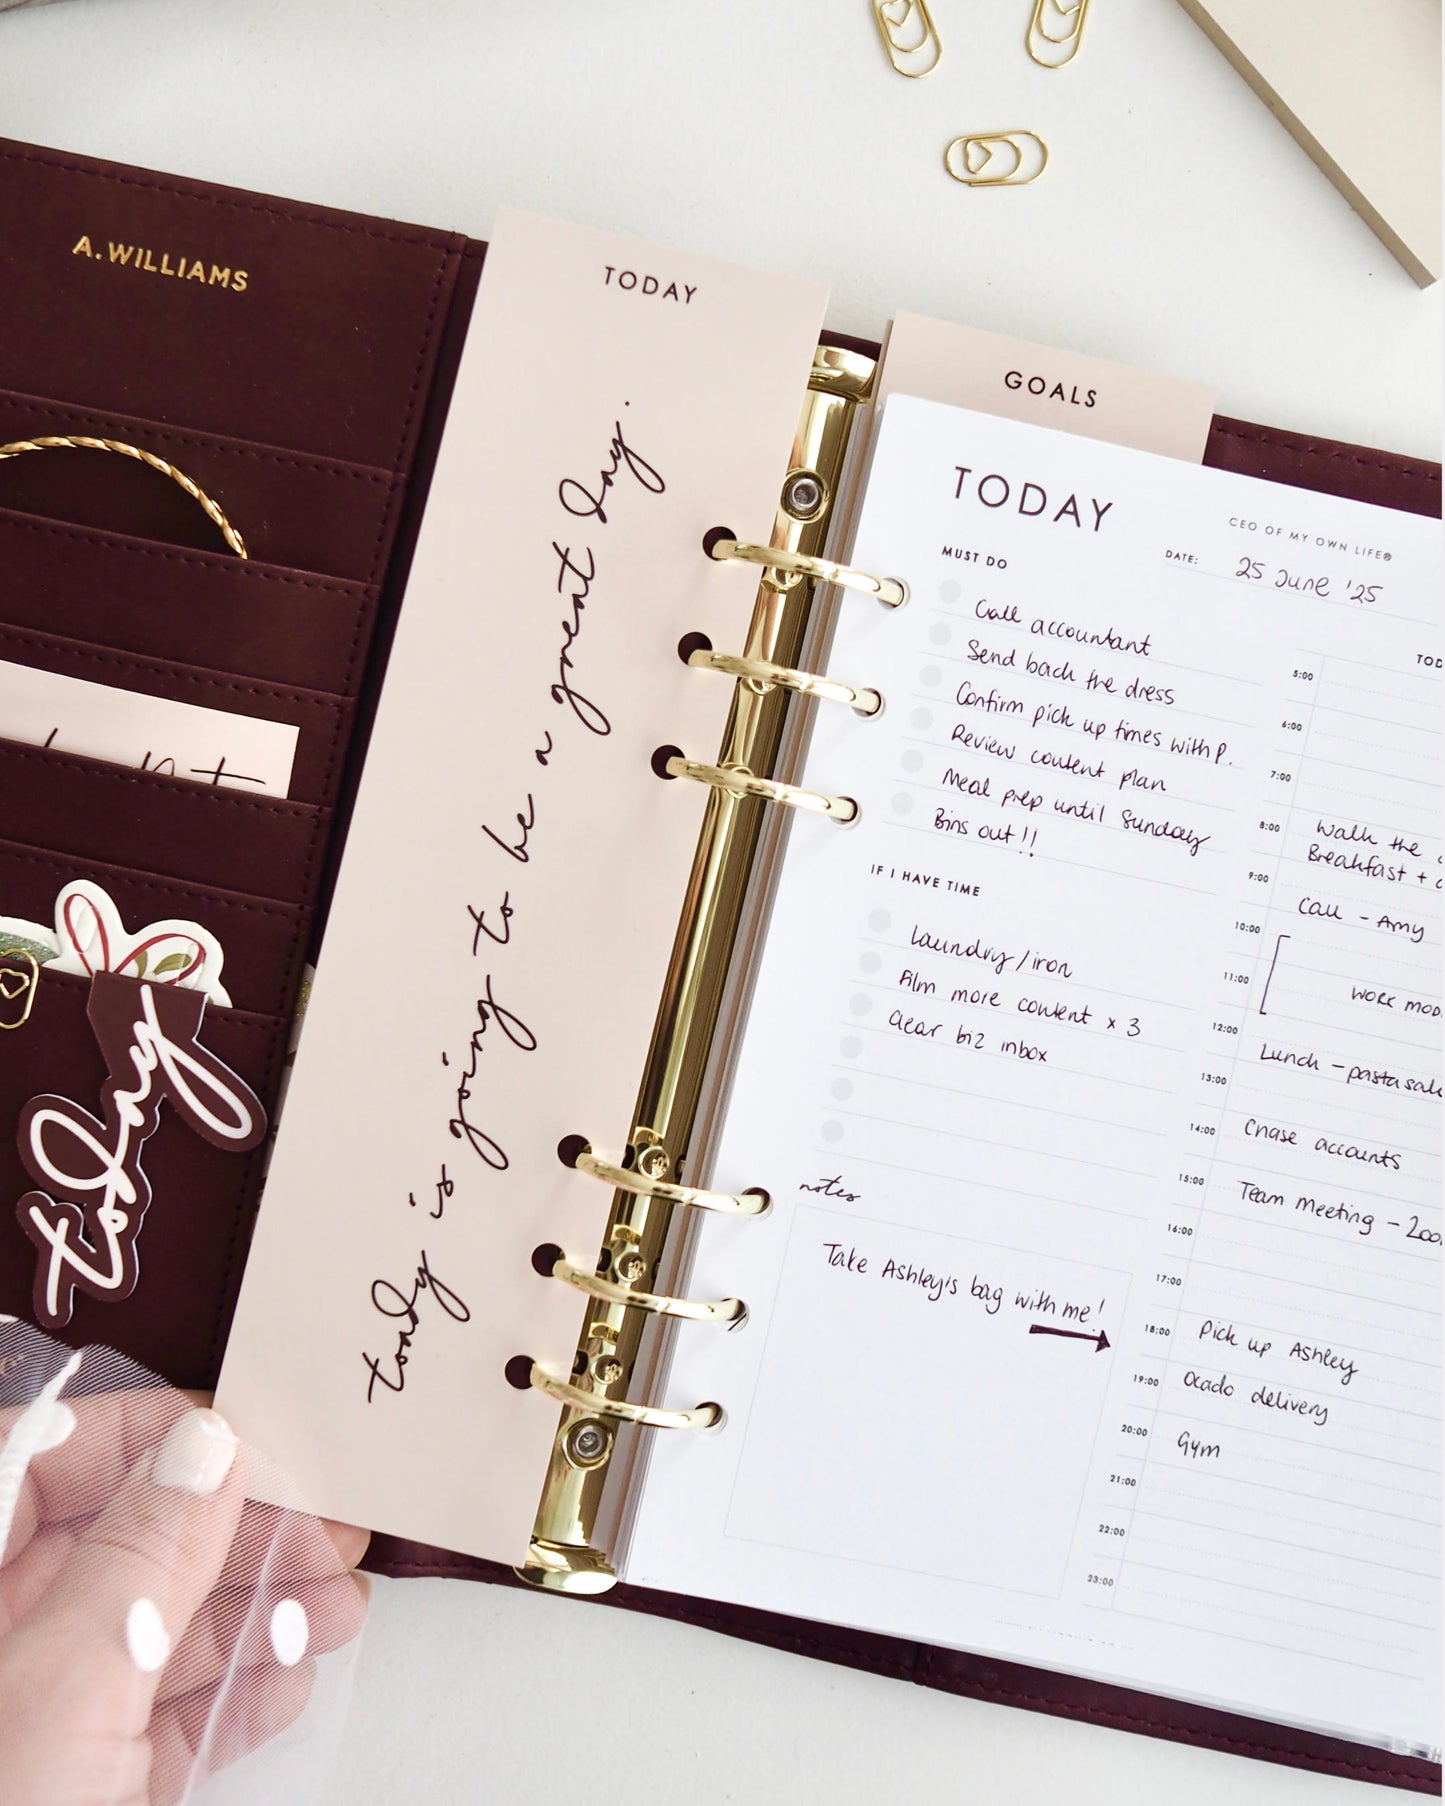 A. WILLIAMS
TODAY
today is going to be a great day.
today
GOALS
TODAY
CEO OF MY OWN LIFE®
MUST DO
DATE: 25 June '25
Call accountant
Send back the dress
Confirm pick up times with P.
Review content plan
Meal prep until Sunday
Bins out!!
IF I HAVE TIME
Laundry/iron
Film more content x 3
Clear biz inbox
notes
Take Ashley's bag with me!
5:00
6:00
7:00
8:00 Walk the
Breakfast +
9:00
Call - Amy
10:00
11:00 Work
12:00
Lunch - pasta
13:00
14:00 Chase accounts
15:00 Team meeting -
16:00
17:00
18:00 Pick up Ashley
19:00 Ocado delivery
20:00 Gym
21:00
22:00
23:00